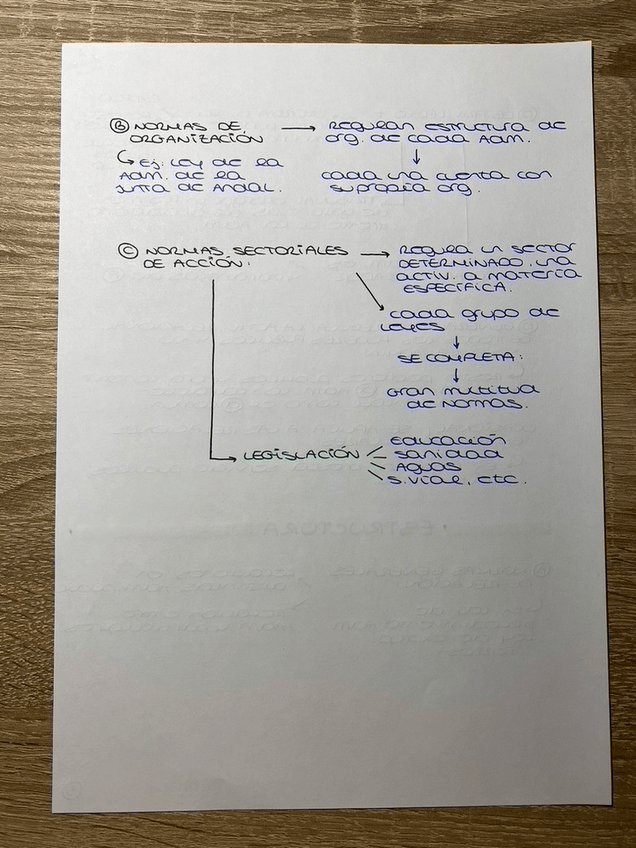 Ⓑ NORMAS DE
ORGANIZACIÓN → REGULAN ESTRUCTURA DE
ORG. DE CADA ADM.
↳ Ej. LEY DE LA
ADM. DE LA
JUNTA DE ANDAL.
↓
CADA UNA CUENTA CON
SU PROPIA ORG.
Ⓒ NORMAS SECTORIALES
DE ACCIÓN. → REGULA UN SECTOR
DETERMINADO. UNA
ACTIV. A MATERIA
ESPECÍFICA.
CADA GRUPO DE
LEYES
↓
SE COMPLETA:
↓
GRAN MULTITUD
DE NORMAS.
→ LEGISLACIÓN
EDUCACIÓN
SANIDAD
AGUAS
S. VIAL, ETC.